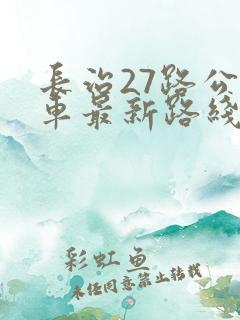 长治27路公
车最新路线
彩虹鱼
未经同意禁止转载